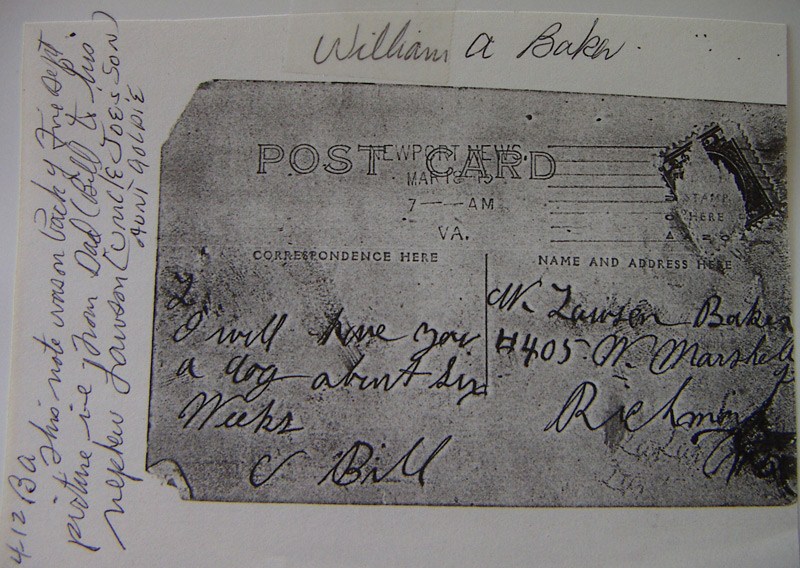 William A Baker
POST CARD
NEWPORT NEWS
MAR 18 15
7 — AM
VA.
STAMP
HERE
CORRESPONDENCE HERE
NAME AND ADDRESS HERE
L.
I will have you
a dog about Six
Weeks
Bill
W. Lawson Baker
#405 W. Marshall
Richmond
4-12 Ba
This note was on back of Fire Dept
picture ive from Dad (Bill to his
nephew Lawson (UNCLE JOE'S SON)
AUNT GOLDIE